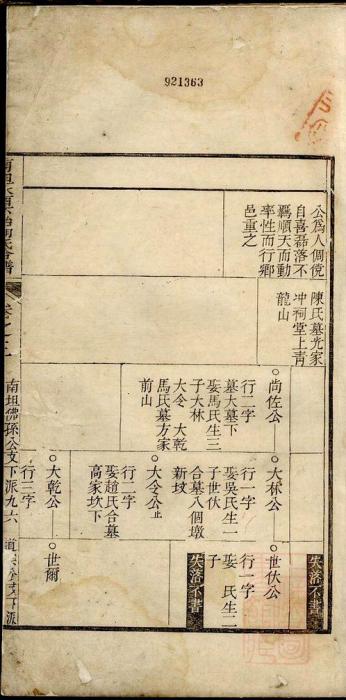 921363
公爲人倜儻
自喜磊落不
羈順天而動
率性而行鄉
邑重之
陳氏墓尭家
冲祠堂上青
龍山
尚佐公
行二字
墓大墓下
娶馬氏生三
子大林
大令 大乾
馬氏墓方家
前山
大林公
行一字
娶吳氏生一
子世伏
合墓八個墩
新坟
大令公止
行二字
娶趙氏合墓
高家坎下
大乾公
行二字
世伏公
行一字
娶 氏生二
子
失落不書
失落不書
世爾
卷之二
南坦佛孫公支下派九六